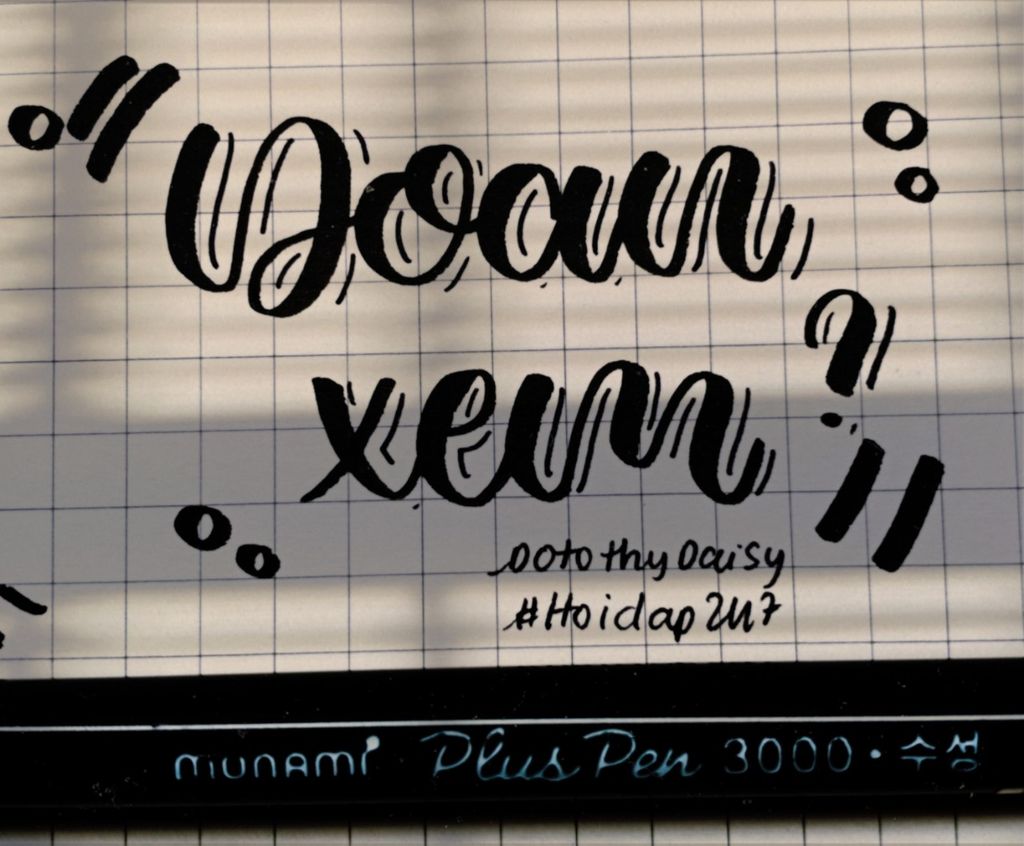 "Doan
xem?"
DotothyDaisy
#Hoidap247
MUNAMI Plus Pen 3000 · 수성